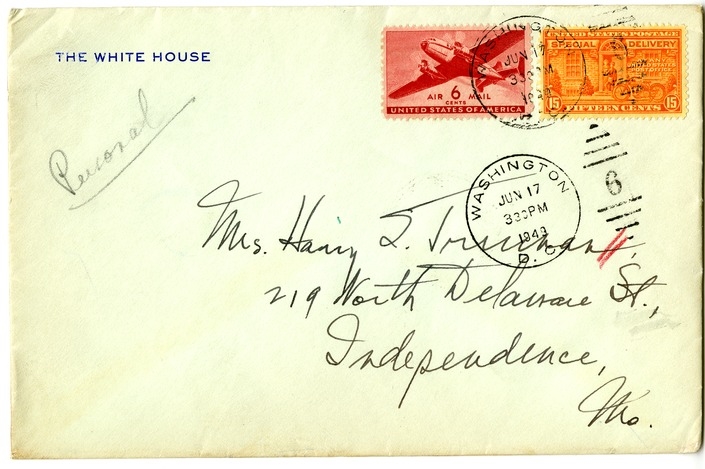 THE WHITE HOUSE
Personal
AIR 6 MAIL
CENTS
UNITED STATES OF AMERICA
UNITED STATES POSTAGE
SPECIAL DELIVERY
15 FIFTEEN CENTS 15
WASHINGTON
JUN 17
330PM
1949
WASHINGTON
JUN 17
330PM
1949
D. C.
6
Mrs. Harry S. Truman,
219 North Delaware St.,
Independence,
Mo.